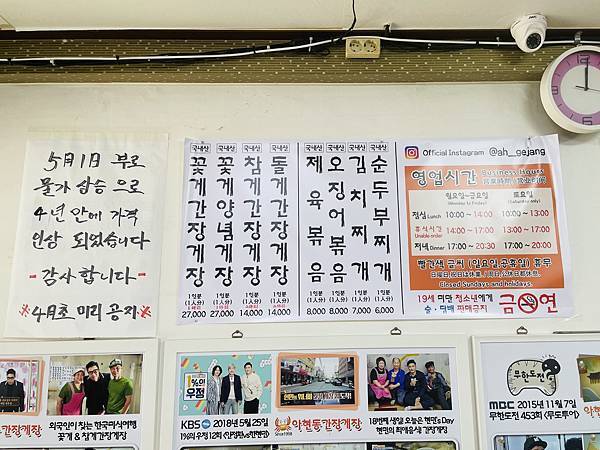 5月1日 부로
물가 상승 으로
4년 만에 가격
인상 되었습니다
- 감사 합니다 -
※ 4月초 미리 공지 ※
국내산
꽃게간장게장
1인분
(1人分)
27,000
국내산
꽃게양념게장
1인분
(1人分)
27,000
국내산
참게간장게장
1인분
(1人分)
14,000
국내산
돌게간장게장
1인분
(1人分)
14,000
국내산
제육볶음
1인분
(1人分)
8,000
국내산
오징어볶음
1인분
(1人分)
8,000
국내산
김치찌개
1인분
(1人分)
7,000
국내산
순두부찌개
1인분
(1人分)
6,000
Official Instagram @ah__gejang
영업시간 Business Hours
営業時間/营业时间
월요일~금요일
(Monday to Friday)
토요일
(Saturday only)
점심 Lunch 10:00 ~ 14:00 10:00 ~ 13:00
휴식시간
Unable-order 14:00 ~ 17:00 13:00 ~ 17:00
저녁 Dinner 17:00 ~ 20:30 17:00 ~ 20:00
빨간색 글씨 (일요일,공휴일) 휴무
Closed Sundays and holidays.
19세 미만 청소년에게
술·담배 판매금지
금연
외국인이 찾는 한국미식여행
꽃게 & 참게간장게장
1%의
우정
KBS 2018년 5월 25일
1%의 우정 12회 <안정환vs한현민>
아현동간장게장
Since 1958
18번째 생일! 오늘은 현민's Day
현민의 최애음식! 간장게장
무한도전
MBC 2015년 11월 7일
무한도전 453회 (무도투어)